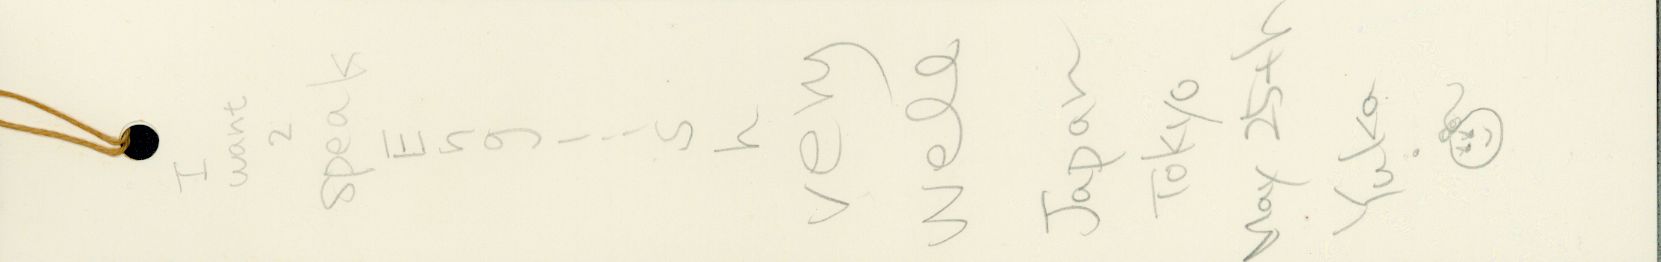 I
want
2
speak
English
very
well
Japan
Tokyo
May 25th
Yuka.